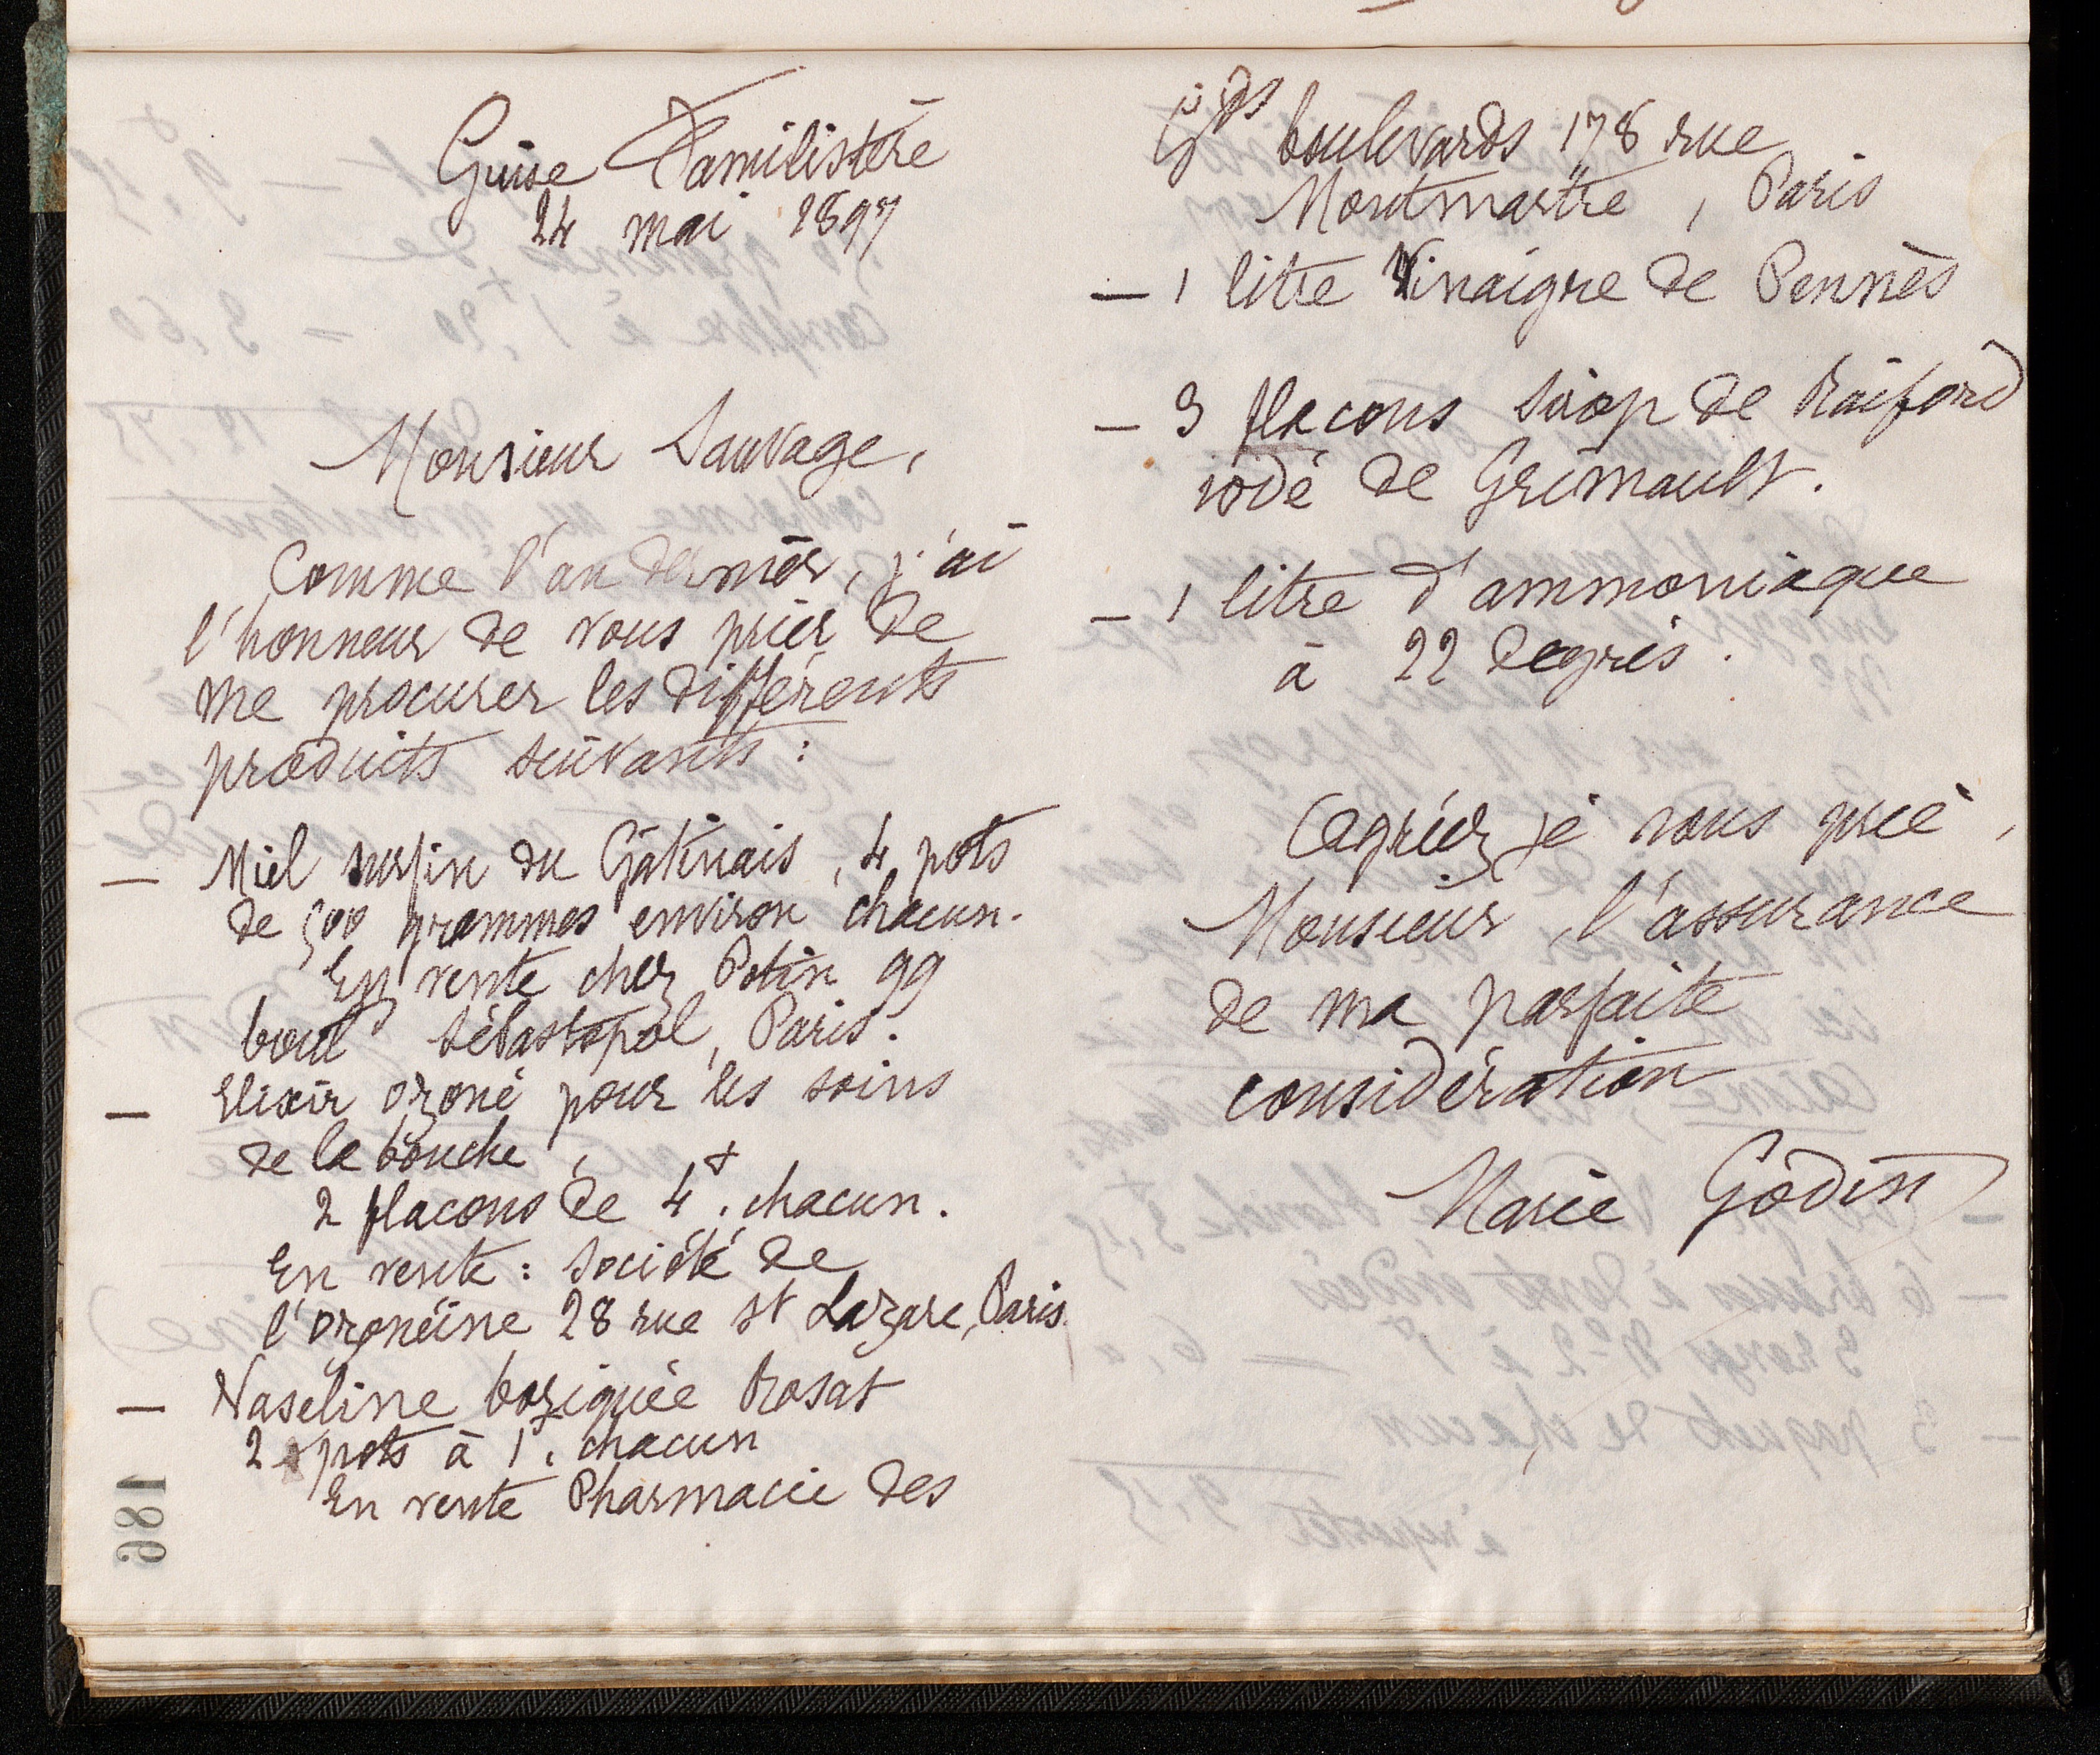 Guise Familistère
24 mai 1897
Monsieur Sauvage,
Comme l'an dernier, j'ai
l'honneur de vous prier de
me procurer les différents
produits suivants :
— Miel surfin du Gâtinais, 4 pots
de 500 grammes environ chacun.
En vente chez Potin 99
boul^d Sébastopol, Paris.
— Elixir ozoné pour les soins
de la bouche,
2 flacons de 4^f. chacun.
En vente : Société de
l'ozonéine 28 rue St Lazare, Paris.
— Vaseline boriquée Rosat
2 pots à 1^f. chacun
En vente Pharmacie des
186
G^ds boulevards 178 rue
Montmartre, Paris
— 1 litre Vinaigre de Pennès
— 3 flacons sirop de Raiford
iodé de Grimault.
— 1 litre d'ammoniaque
à 22 degrés.
Agréez je vous prie,
Monsieur, l'assurance
de ma parfaite
considération
Marie Godin